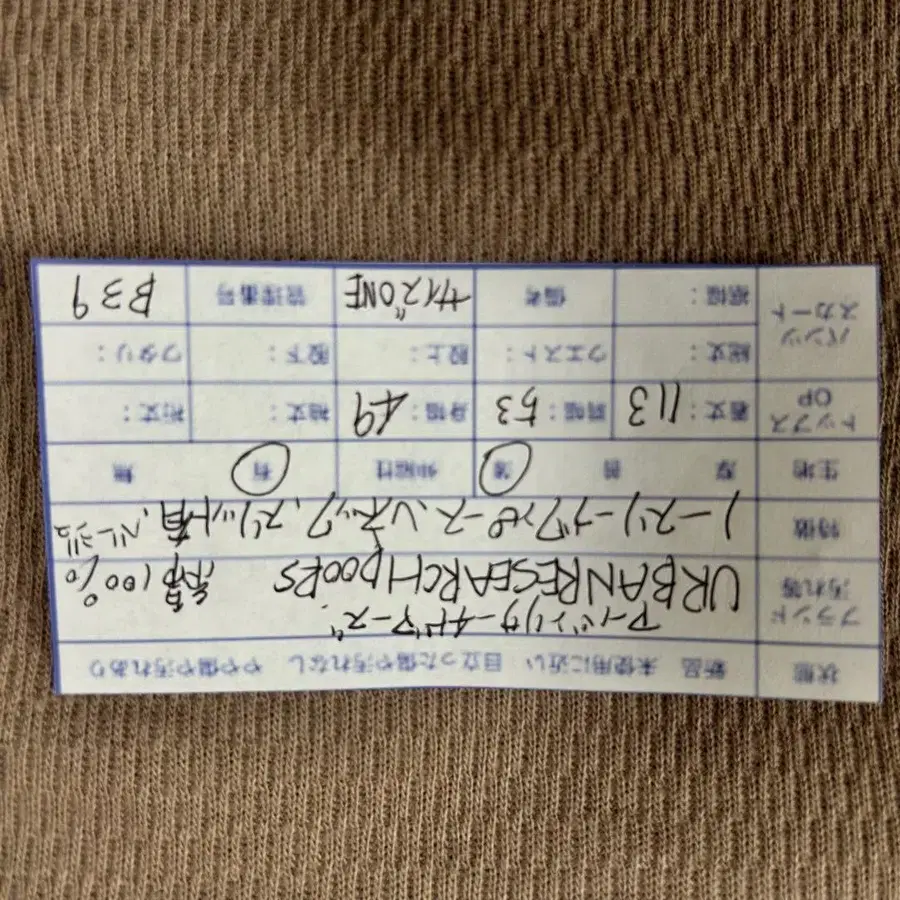 状態 新品 未使用に近い 目立った傷や汚れなし やや傷や汚れあり
アーバンリサーチドアーズ
ブランド 汚れ等 URBANRESEARCH DOORS 綿100%
特徴 ノースリーブワンピース、Vネック、スリット有、ベージュ
生地 厚 普 薄 伸縮性 有 無
トップス OP 着丈: 113 肩幅: 53 身幅: 49 袖丈: 裄丈:
パンツ スカート 総丈: ウエスト: 股上: 股下: ワタリ:
裾幅: 備考 サイズONE 管理番号 B39